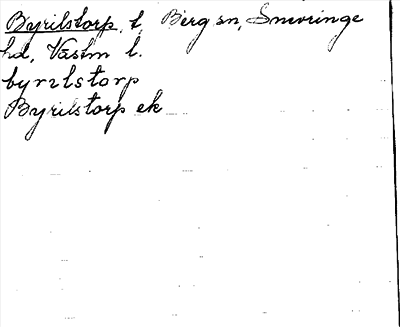 Byrilstorp, t, Berg sn, Snevringe
hd, Västm l.
byrilstorp
Byrilstorp ek